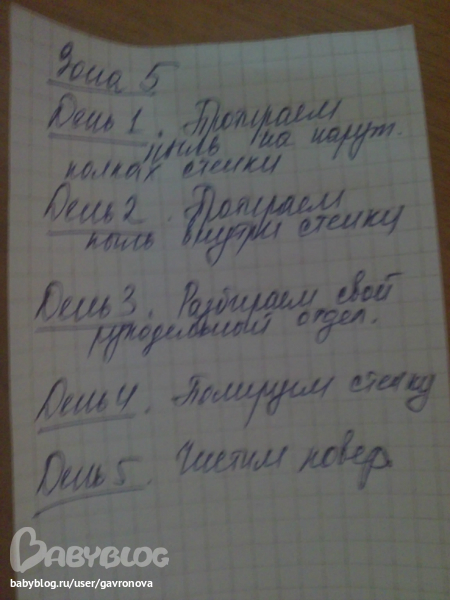 Зона 5
День 1. Протираем
пыль на наруж.
полках стенки
День 2. Протираем
пыль внутри стенки
День 3. Разбираем свой
рукодельный отдел.
День 4. Полируем стенку
День 5. Чистим ковер.
BABYBLOG
babyblog.ru/user/gavronova